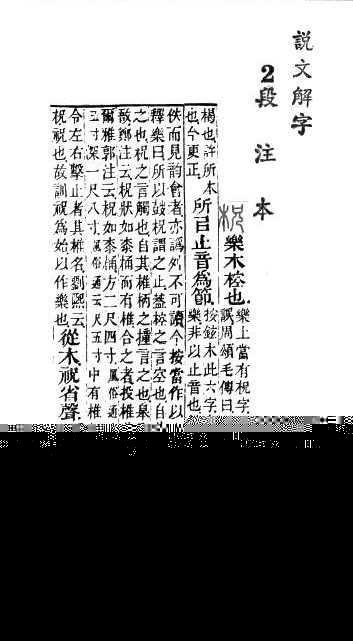 說文解字
2段注本
樂木椌也
樂上當有柷字
誤周頌毛傳曰
楬也許所本
也今更正
所㠯止音爲節
按鉉本此六字
樂非以止音也
佚而見韵會者亦譌舛不可讀今按當作以
釋樂曰所以鼓柷謂之止葢椌之言空也自
之也柷之言觸也自其椎柄之撞言之也皋
鄭注云柷狀如桼桶而有椎合之者投椎
爾雅郭注云柷如桼桶方二尺四寸風俗通
寸深一尺八寸風俗通云尺五寸中有椎
令左右擊止者其椎名劉熙云
柷祝也故訓柷爲始以作樂也
從木祝省聲